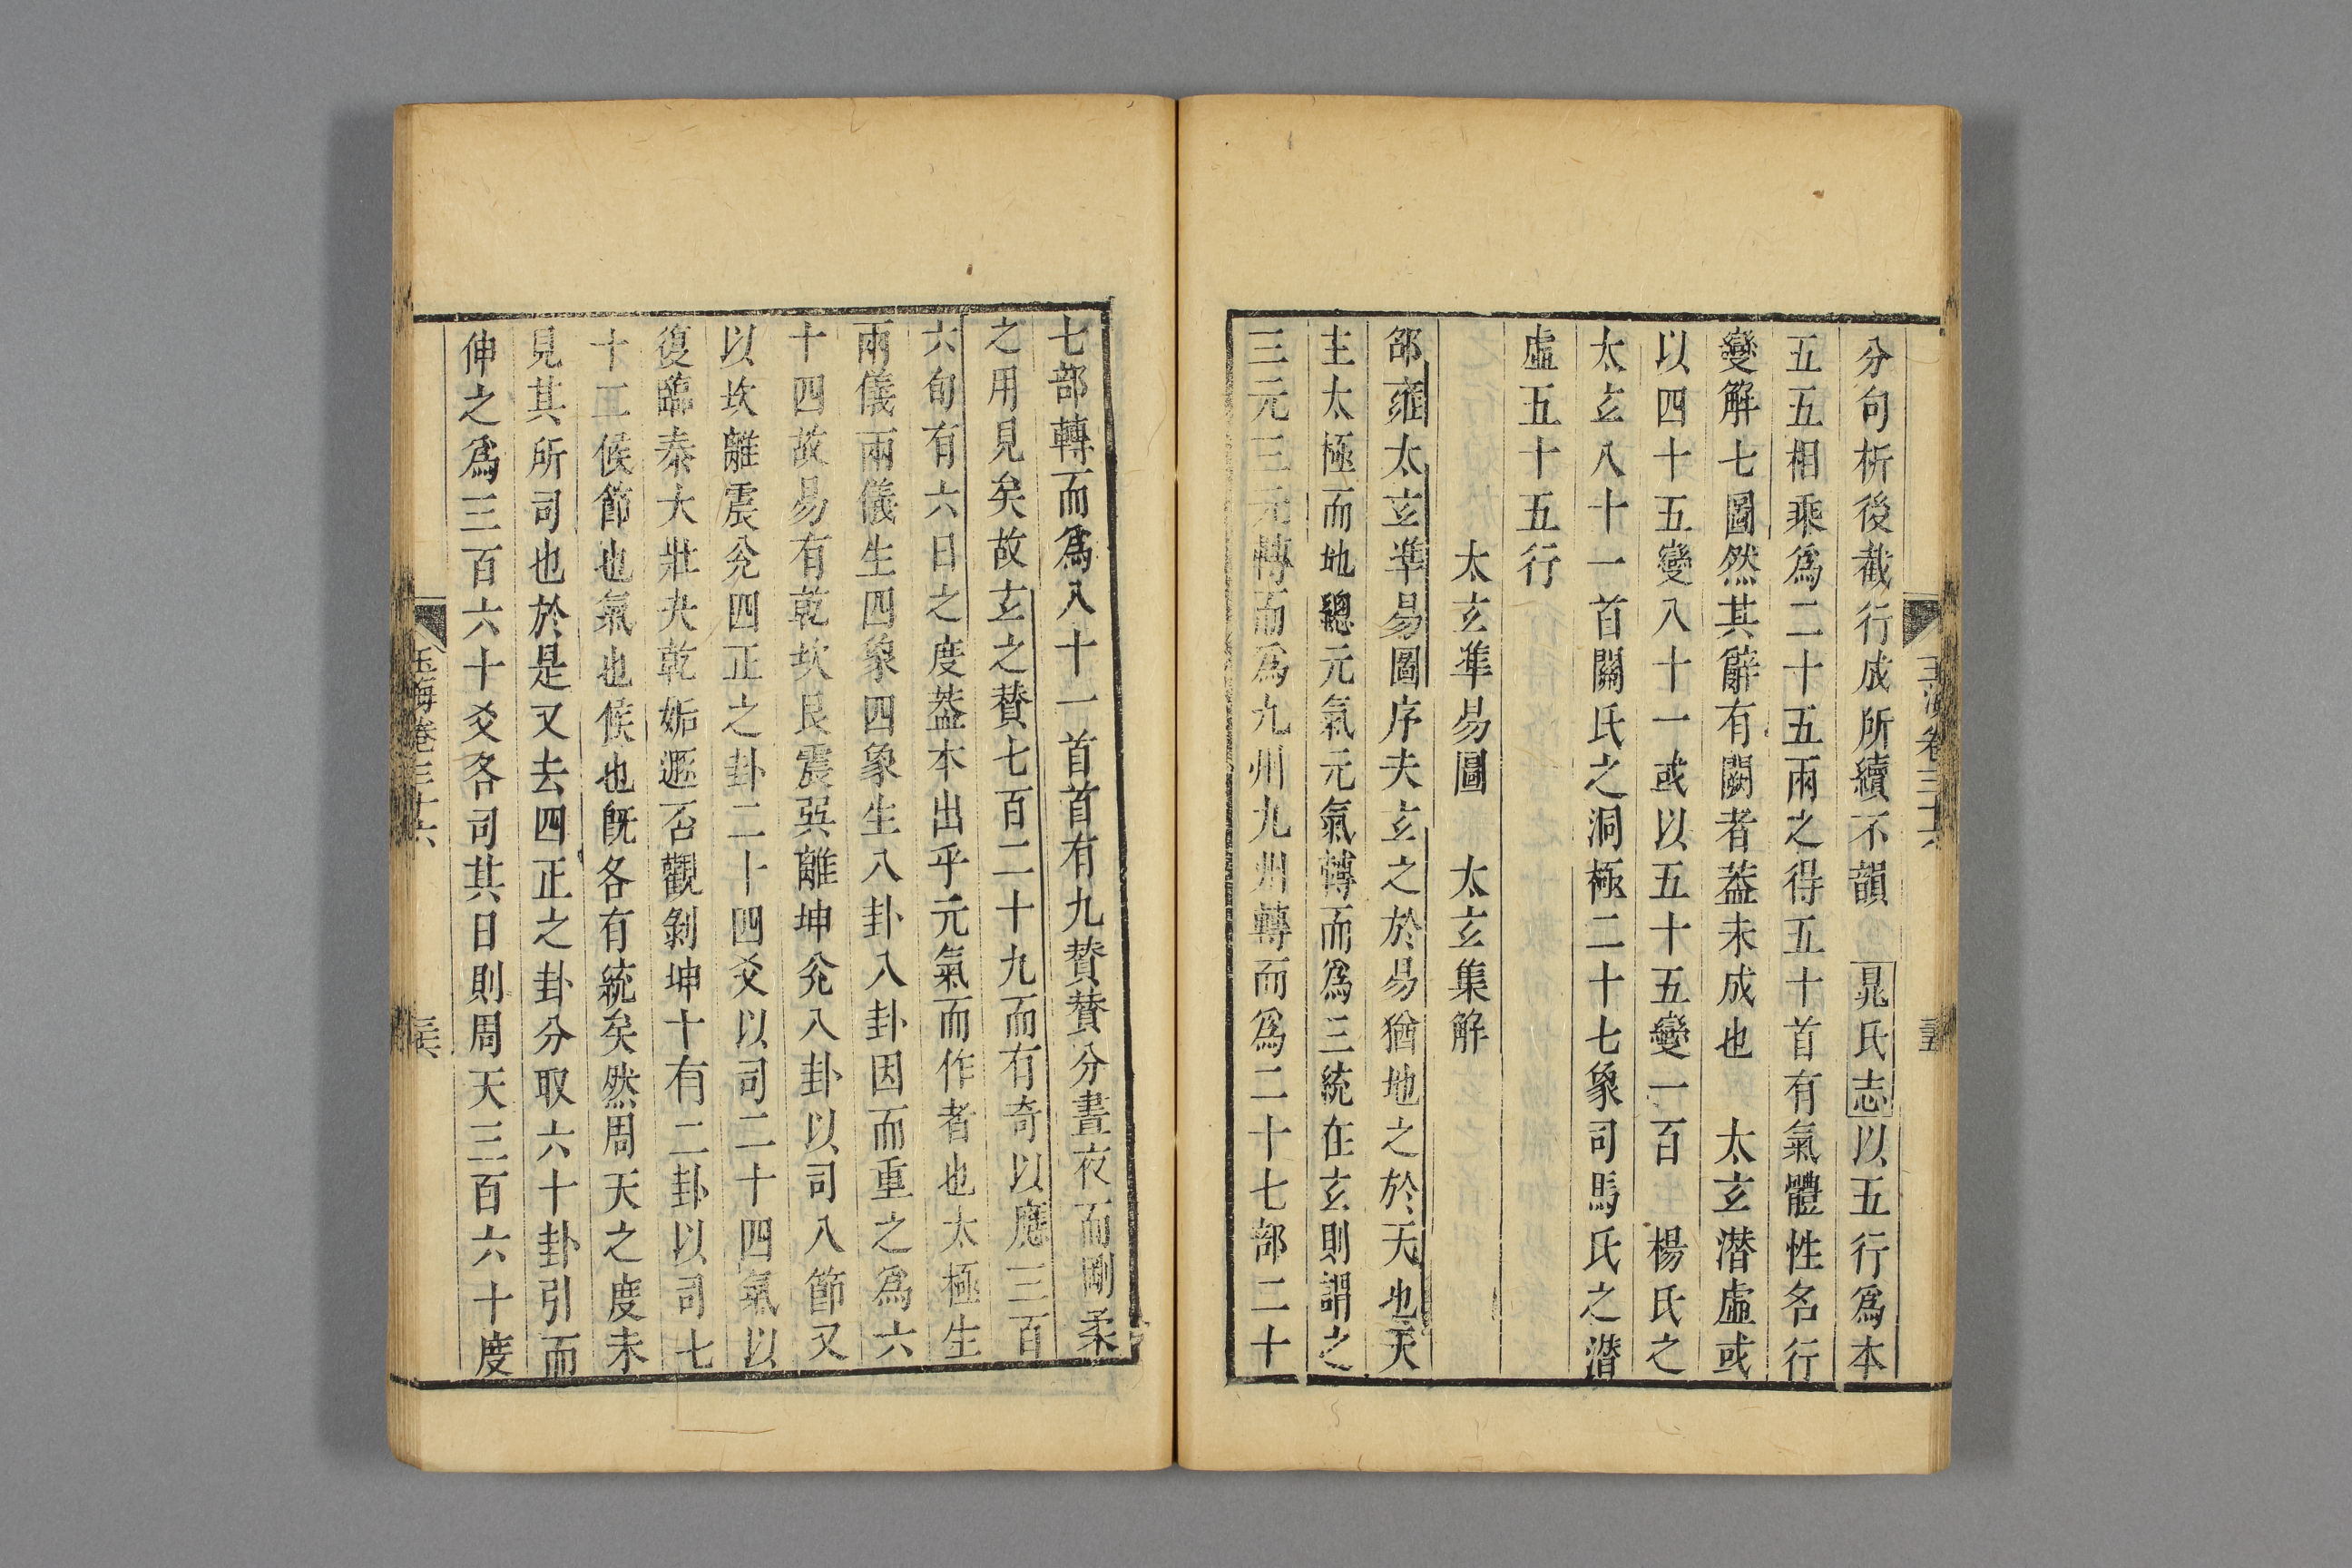 玉海卷三十六
三五
分句析後截行成所續不韻 晁氏志以五行爲本
五五相乘爲二十五兩之得五十首有氣體性名行
變解七圖然其辭有闕者葢未成也 太玄潛虛或
以四十五變八十一或以五十五變一百 楊氏之
太玄八十一首關氏之洞極二十七象司馬氏之潛
虛五十五行
太玄準易圖 太玄集解
邵雍太玄準易圖序夫玄之於易猶地之於天也天
主太極而地總元氣元氣轉而爲三統在玄則謂之
三元三元轉而爲九州九州轉而爲二十七部二十
七部轉而爲八十一首首有九贊贊分晝夜而剛柔
之用見矣故玄之贊七百二十九而有奇以應三百
六旬有六日之度葢本出乎元氣而作者也太極生
兩儀兩儀生四象四象生八卦八卦因而重之爲六
十四故易有乾坎艮震巽離坤兊八卦以司八節又
以坎離震兊四正之卦二十四爻以司二十四氣以
復臨泰大壯夬乾姤遯否觀剝坤十有二卦以司七
十二候節也氣也候也旣各有統矣然周天之度未
見其所司也於是又去四正之卦分取六十卦引而
伸之爲三百六十爻各司其日則周天三百六十度
玉海卷三十六
三六